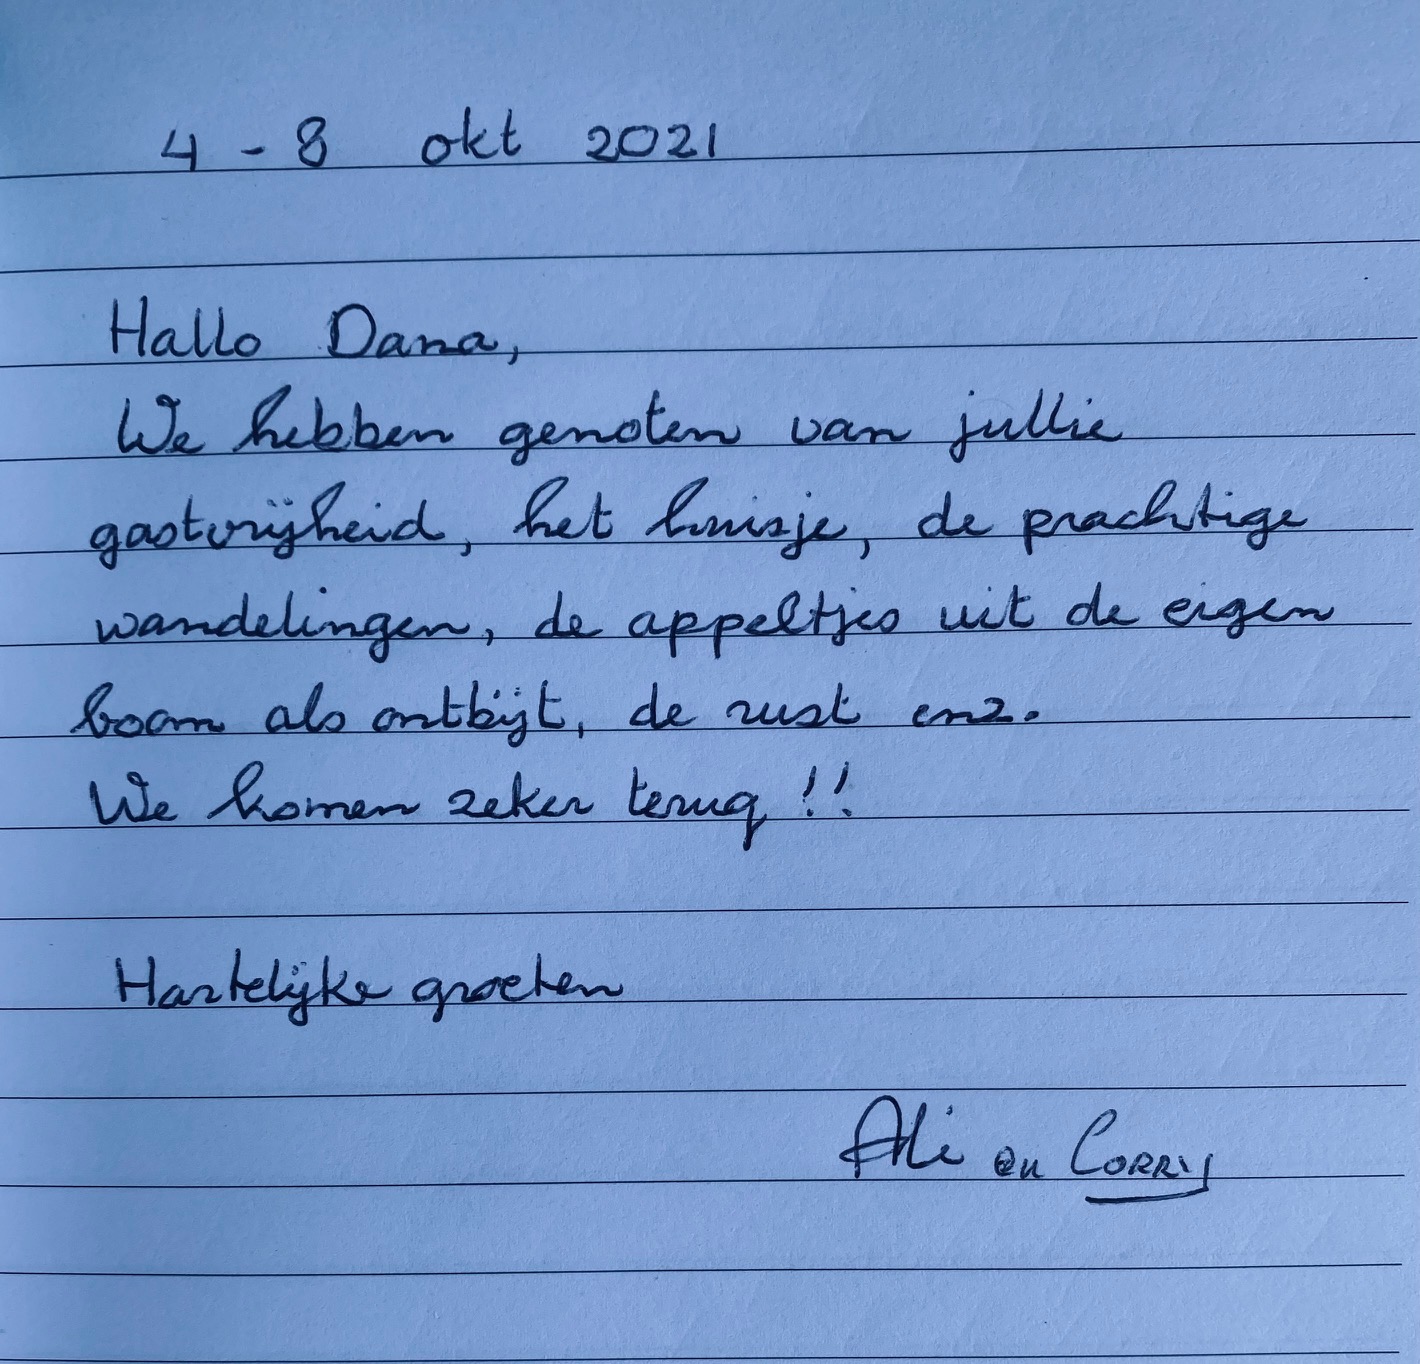 4 - 8 okt 2021
Hallo Dana,
We hebben genoten van jullie
gastvrijheid, het huisje, de prachtige
wandelingen, de appeltjes uit de eigen
boom als ontbijt, de rust enz.
We komen zeker terug !!
Hartelijke groeten
Ali en Corry